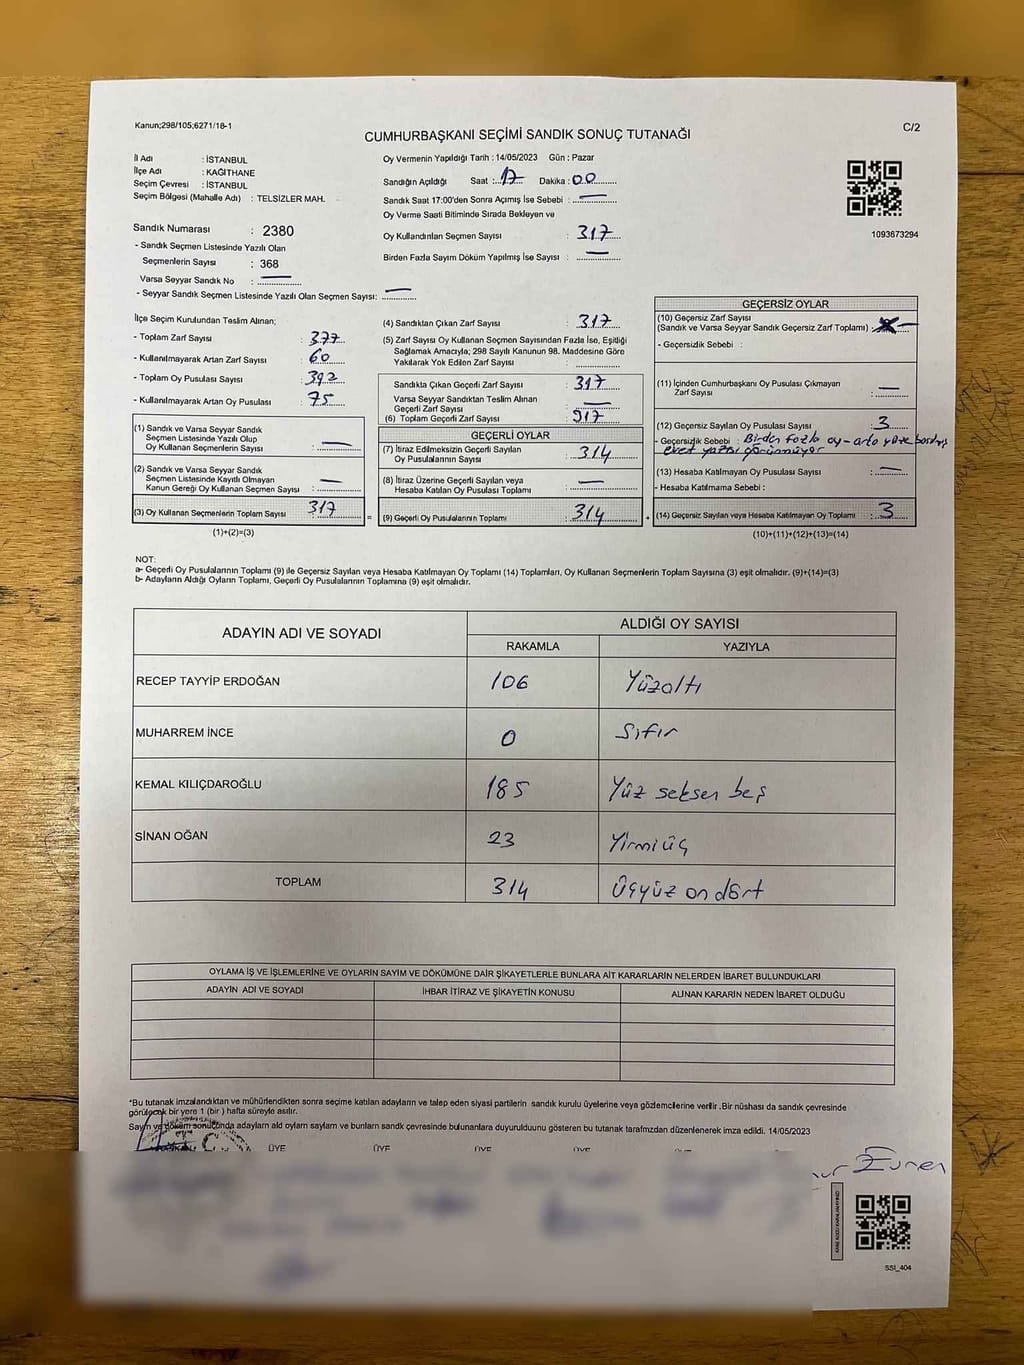 Kanun;298/105;6271/18-1
C/2
CUMHURBAŞKANI SEÇİMİ SANDIK SONUÇ TUTANAĞI
İl Adı : İSTANBUL
İlçe Adı : KAĞITHANE
Seçim Çevresi : İSTANBUL
Seçim Bölgesi (Mahalle Adı) : TELSİZLER MAH.
Sandık Numarası : 2380
- Sandık Seçmen Listesinde Yazılı Olan
Seçmenlerin Sayısı : 368
Varsa Seyyar Sandık No :
- Seyyar Sandık Seçmen Listesinde Yazılı Olan Seçmen Sayısı:
Oy Vermenin Yapıldığı Tarih : 14/05/2023 Gün : Pazar
Sandığın Açıldığı Saat : 17 Dakika : 00
Sandık Saat 17:00'den Sonra Açımış İse Sebebi :
Oy Verme Saati Bitiminde Sırada Bekleyen ve
Oy Kullandırılan Seçmen Sayısı : 317
Birden Fazla Sayım Döküm Yapılmış İse Sayısı :
1093673294
İlçe Seçim Kurulundan Teslim Alınan;
- Toplam Zarf Sayısı : 377
- Kullanılmayarak Artan Zarf Sayısı : 60
- Toplam Oy Pusulası Sayısı : 392
- Kullanılmayarak Artan Oy Pusulası : 75
(1) Sandık ve Varsa Seyyar Sandık
Seçmen Listesinde Yazılı Olup
Oy Kullanan Seçmenlerin Sayısı :
(2) Sandık ve Varsa Seyyar Sandık
Seçmen Listesinde Kayıtlı Olmayan
Kanun Gereği Oy Kullanan Seçmen Sayısı :
(3) Oy Kullanan Seçmenlerin Toplam Sayısı : 317
(1)+(2)=(3)
(4) Sandıktan Çıkan Zarf Sayısı : 317
(5) Zarf Sayısı Oy Kullanan Seçmen Sayısından Fazla İse, Eşitliği
Sağlamak Amacıyla; 298 Sayılı Kanunun 98. Maddesine Göre
Yakılarak Yok Edilen Zarf Sayısı :
Sandıkta Çıkan Geçerli Zarf Sayısı : 317
Varsa Seyyar Sandıktan Teslim Alınan
Geçerli Zarf Sayısı :
(6) Toplam Geçerli Zarf Sayısı : 317
GEÇERLİ OYLAR
(7) İtiraz Edilmeksizin Geçerli Sayılan
Oy Pusulalarının Sayısı : 314
(8) İtiraz Üzerine Geçerli Sayılan veya
Hesaba Katılan Oy Pusulası Toplamı :
= (9) Geçerli Oy Pusulalarının Toplamı : 314
GEÇERSİZ OYLAR
(10) Geçersiz Zarf Sayısı
(Sandık ve Varsa Seyyar Sandık Geçersiz Zarf Toplamı) :
- Geçersizlik Sebebi :
(11) İçinden Cumhurbaşkanı Oy Pusulası Çıkmayan
Zarf Sayısı :
(12) Geçersiz Sayılan Oy Pusulası Sayısı : 3
- Geçersizlik Sebebi : Birden fazla oy - arka yüze
evet yazısı görünmüyor
(13) Hesaba Katılmayan Oy Pusulası Sayısı :
- Hesaba Katılmama Sebebi :
+ (14) Geçersiz Sayılan veya Hesaba Katılmayan Oy Toplamı : 3
(10)+(11)+(12)+(13)=(14)
NOT:
a- Geçerli Oy Pusulalarının Toplamı (9) ile Geçersiz Sayılan veya Hesaba Katılmayan Oy Toplamı (14) Toplamları, Oy Kullanan Seçmenlerin Toplam Sayısına (3) eşit olmalıdır. (9)+(14)=(3)
b- Adayların Aldığı Oyların Toplamı, Geçerli Oy Pusulalarının Toplamına (9) eşit olmalıdır.
ADAYIN ADI VE SOYADI
ALDIĞI OY SAYISI
RAKAMLA YAZIYLA
RECEP TAYYİP ERDOĞAN 106 Yüzaltı
MUHARREM İNCE 0 Sıfır
KEMAL KILIÇDAROĞLU 185 Yüz seksen beş
SİNAN OĞAN 23 Yirmiüç
TOPLAM 314 Üçyüz on dört
OYLAMA İŞ VE İŞLEMLERİNE VE OYLARIN SAYIM VE DÖKÜMÜNE DAİR ŞİKAYETLERLE BUNLARA AİT KARARLARIN NELERDEN İBARET BULUNDUKLARI
ADAYIN ADI VE SOYADI İHBAR İTİRAZ VE ŞİKAYETİN KONUSU ALINAN KARARIN NEDEN İBARET OLDUĞU
*Bu tutanak imzalandıktan ve mühürlendikten sonra seçime katılan adayların ve talep eden siyasi partilerin sandık kurulu üyelerine veya gözlemcilerine verilir .Bir nüshası da sandık çevresinde
görülecek bir yere 1 (bir ) hafta süreyle asılır.
Sayım ve döküm sonucunda adayların aldı oyların saylam ve bunların sandk çevresinde bulunanlara duyurulduunu gösteren bu tutanak tarafmzdan düzenlenerek imza edildi. 14/05/2023
ÜYE ÜYE ÜYE ÜYE
SSI_404